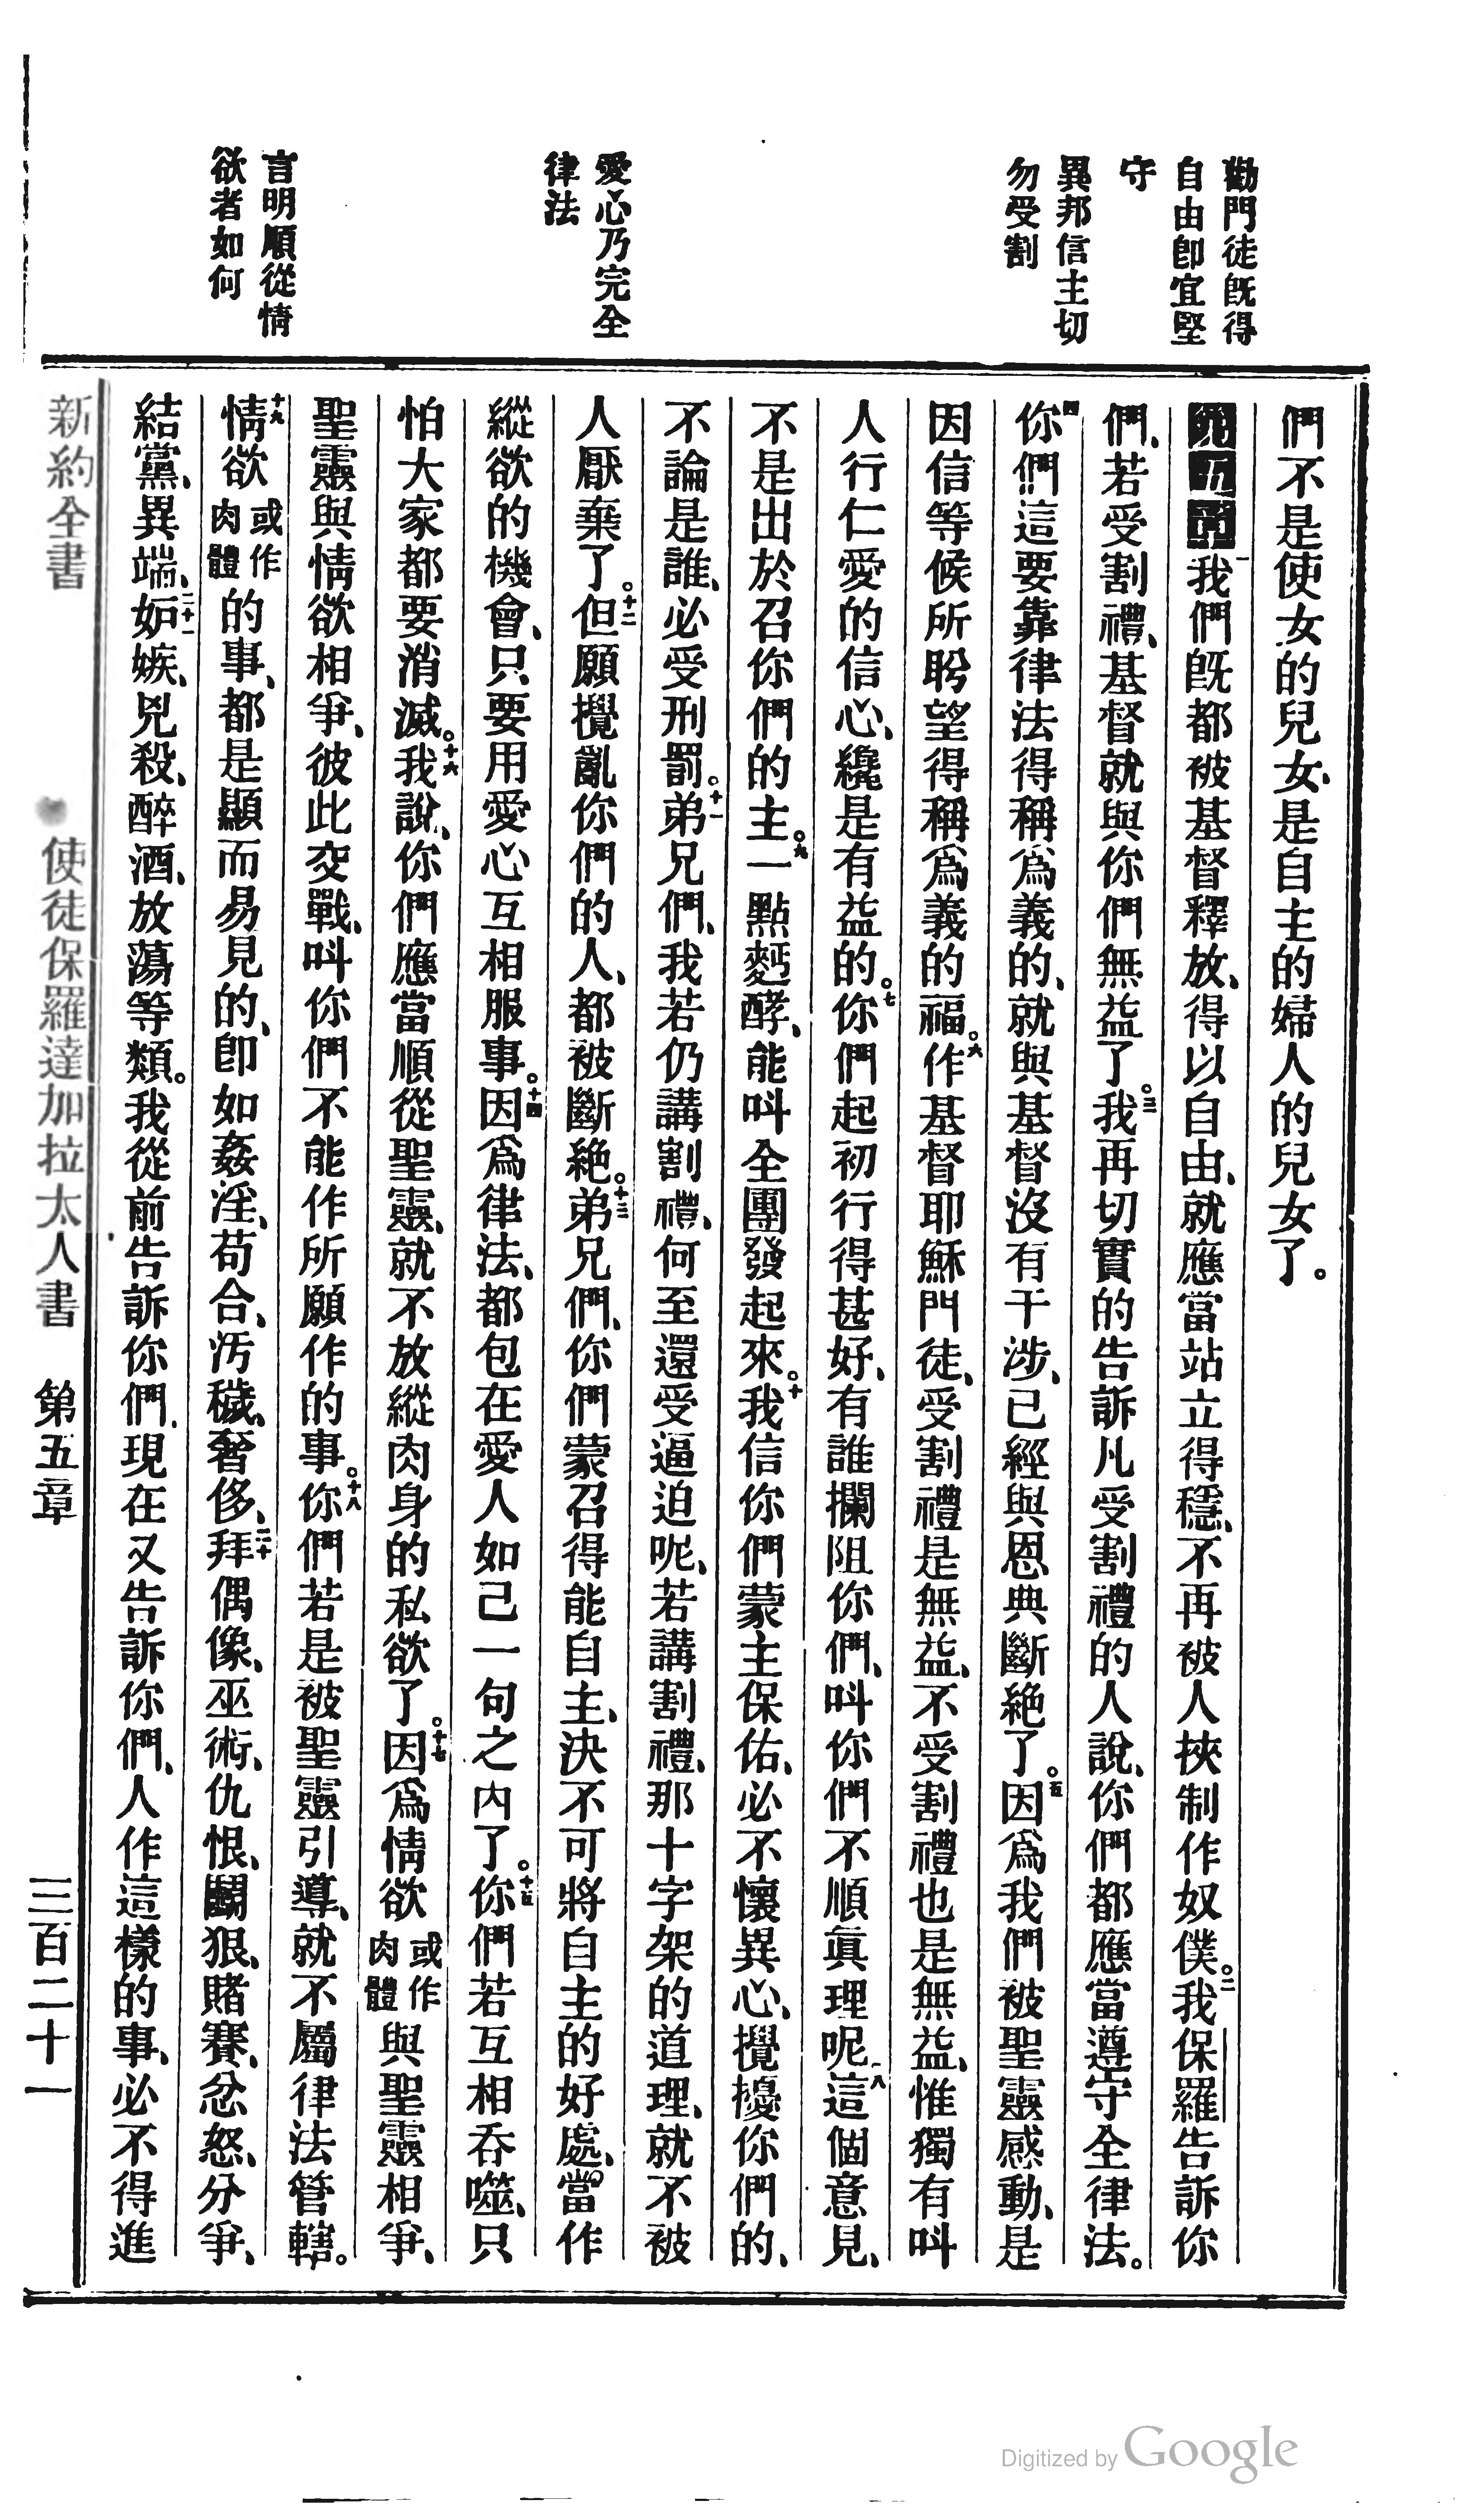 勸門徒旣得
自由卽宜堅
守
異邦信主切
勿受割
愛心乃完全
律法
言明順從情
欲者如何
們不是使女的兒女、是自主的婦人的兒女了。
第五章一我們旣都被基督釋放、得以自由、就應當站立得穩、不再被人挾制作奴僕。二我保羅告訴你
們、若受割禮、基督就與你們無益了。三我再切實的告訴凡受割禮的人說、你們都應當遵守全律法。
四你們這要靠律法得稱爲義的、就與基督沒有干涉、已經與恩典斷絶了。五因爲我們被聖靈感動、是
因信等候所盼望得稱爲義的福。六作基督耶穌門徒、受割禮是無益、不受割禮也是無益、惟獨有叫
人行仁愛的信心、纔是有益的。七你們起初行得甚好、有誰攔阻你們、叫你們不順眞理呢、八這個意見、
不是出於召你們的主。九一點麪酵、能叫全團發起來。十我信你們蒙主保佑、必不懷異心、攪擾你們的、
不論是誰、必受刑罰。十一弟兄們、我若仍講割禮、何至還受逼迫呢、若講割禮、那十字架的道理、就不被
人厭棄了。十二但願攪亂你們的人、都被斷絶。十三弟兄們、你們蒙召得能自主、決不可將自主的好處、當作
縱欲的機會、只要用愛心互相服事。十四因爲律法、都包在愛人如己一句之內了。十五你們若互相吞噬、只
怕大家都要消滅。十六我說、你們應當順從聖靈、就不放縱肉身的私欲了。十七因爲情欲或作肉體與聖靈相爭、
聖靈與情欲相爭、彼此交戰、叫你們不能作所願作的事。十八你們若是被聖靈引導、就不屬律法管轄。
十九情欲或作肉體的事、都是顯而易見的、卽如姦淫、苟合、汚穢、奢侈、二十拜偶像、巫術、仇恨、鬬狠、賭賽、忿怒、分爭、
結黨、異端、二十一妒嫉、兇殺、醉酒、放蕩等類。我從前告訴你們、現在又告訴你們、人作這樣的事、必不得進
新約全書 使徒保羅達加拉太人書 第五章 三百二十一
Digitized by Google